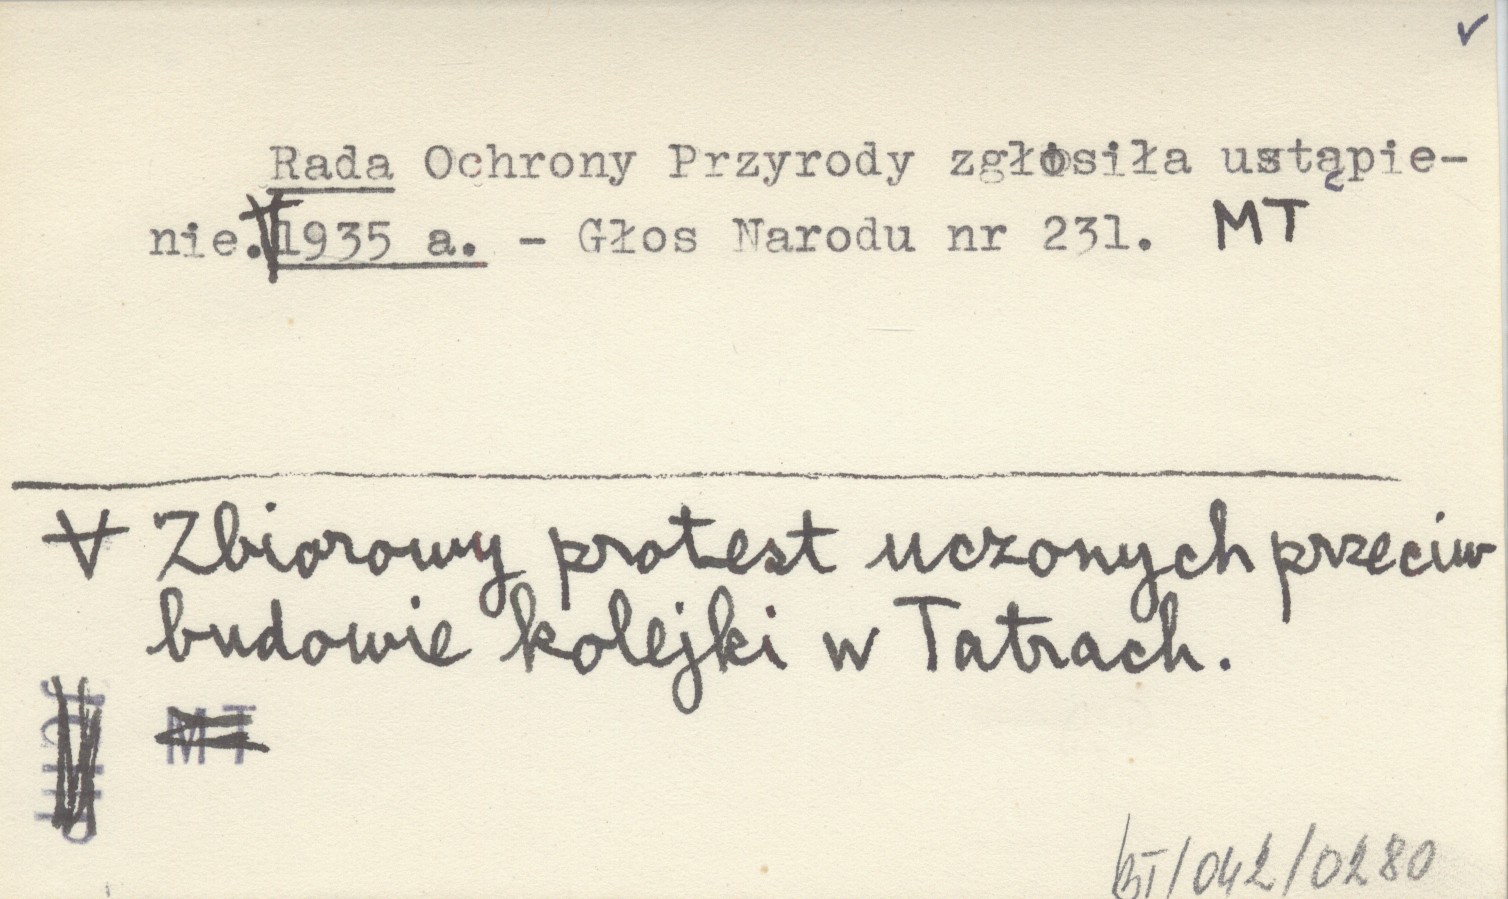 Rada Ochrony Przyrody zgłosiła ustąpie-
nie. 1935 a. - Głos Narodu nr 231. MT
∀ Zbiorowy protest uczonych przeciw
budowie kolejki w Tatrach.
MT
BI/042/0280